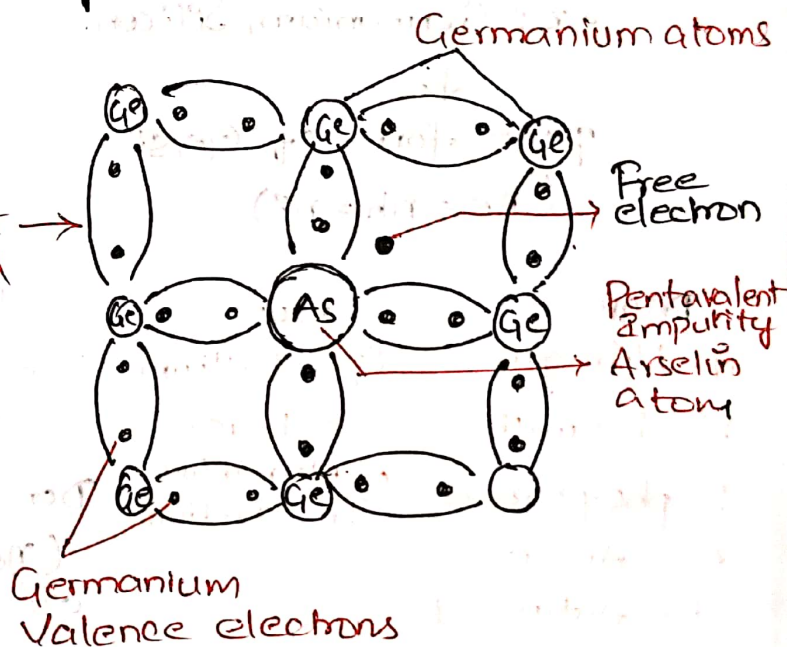 Germanium atoms
Ge
Ge
Ge
Free
electron
Ge
As
Ge
Pentavalent
impurity
Arselin
atom
Ge
Ge
Germanium
Valence electrons